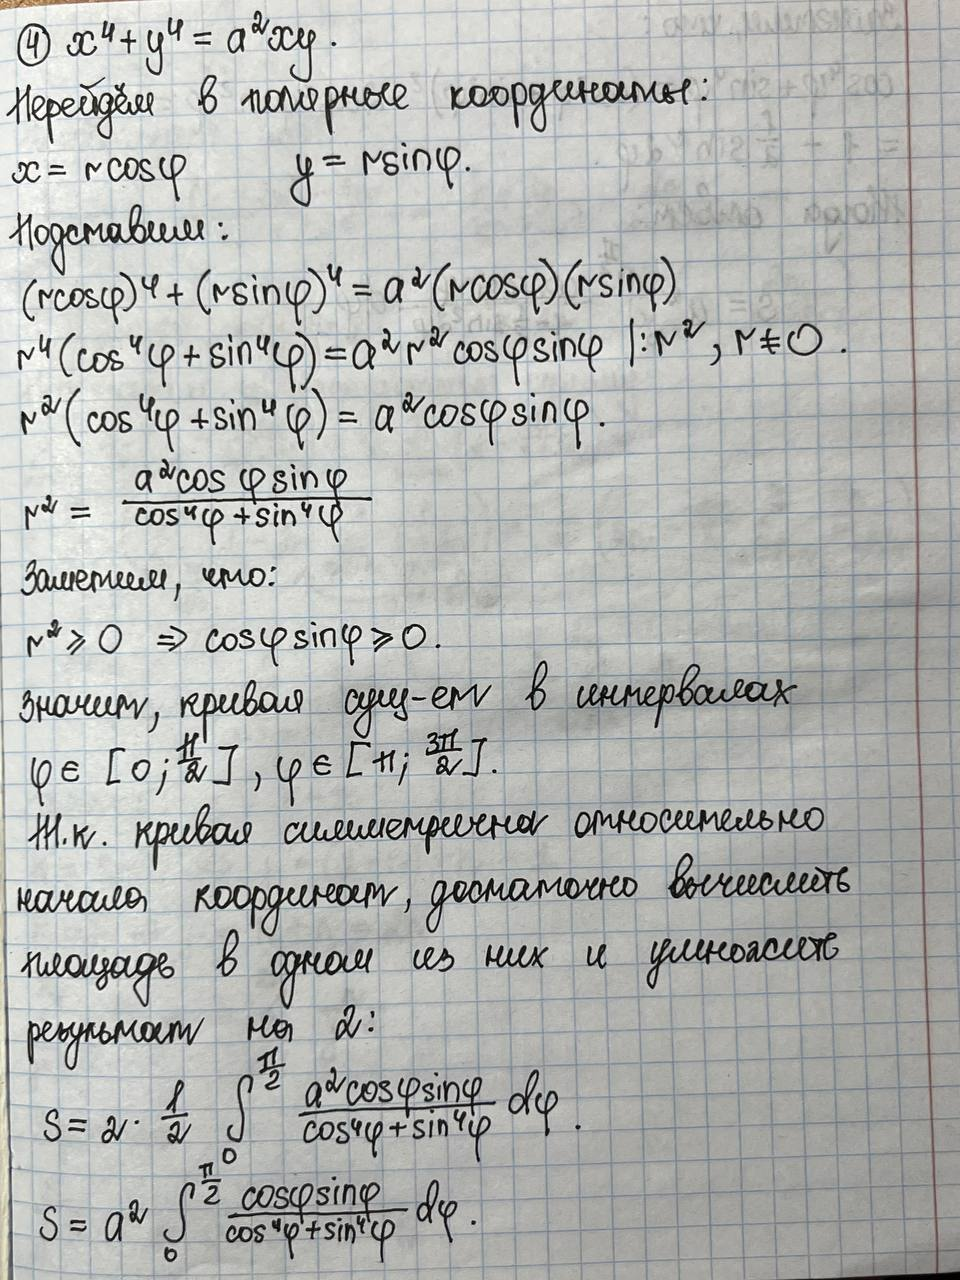 ④ x⁴ + y⁴ = a²xy.
Перейдём в полярные координаты:
x = r cosφ y = r sinφ.
Подставим:
(r cosφ)⁴ + (r sinφ)⁴ = a²(r cosφ)(r sinφ)
r⁴(cos⁴φ + sin⁴φ) = a² r² cosφ sinφ |: r², r ≠ 0.
r²(cos⁴φ + sin⁴φ) = a² cosφ sinφ.
r² = \frac{a² cosφ sinφ}{cos⁴φ + sin⁴φ}
Заметим, что:
r² ⩾ 0 ⇒ cosφ sinφ ⩾ 0.
Значит, кривая сущ-ет в интервалах
φ ∈ [0; \frac{π}{2}], φ ∈ [π; \frac{3π}{2}].
Т.к. кривая симметрична относительно
начала координат, достаточно вычислить
площадь в одном из них и умножить
результат на 2:
S = 2 · \frac{1}{2} \int_0^{\frac{π}{2}} \frac{a² cosφ sinφ}{cos⁴φ + sin⁴φ} dφ.
S = a² \int_0^{\frac{π}{2}} \frac{cosφ sinφ}{cos⁴φ + sin⁴φ} dφ.